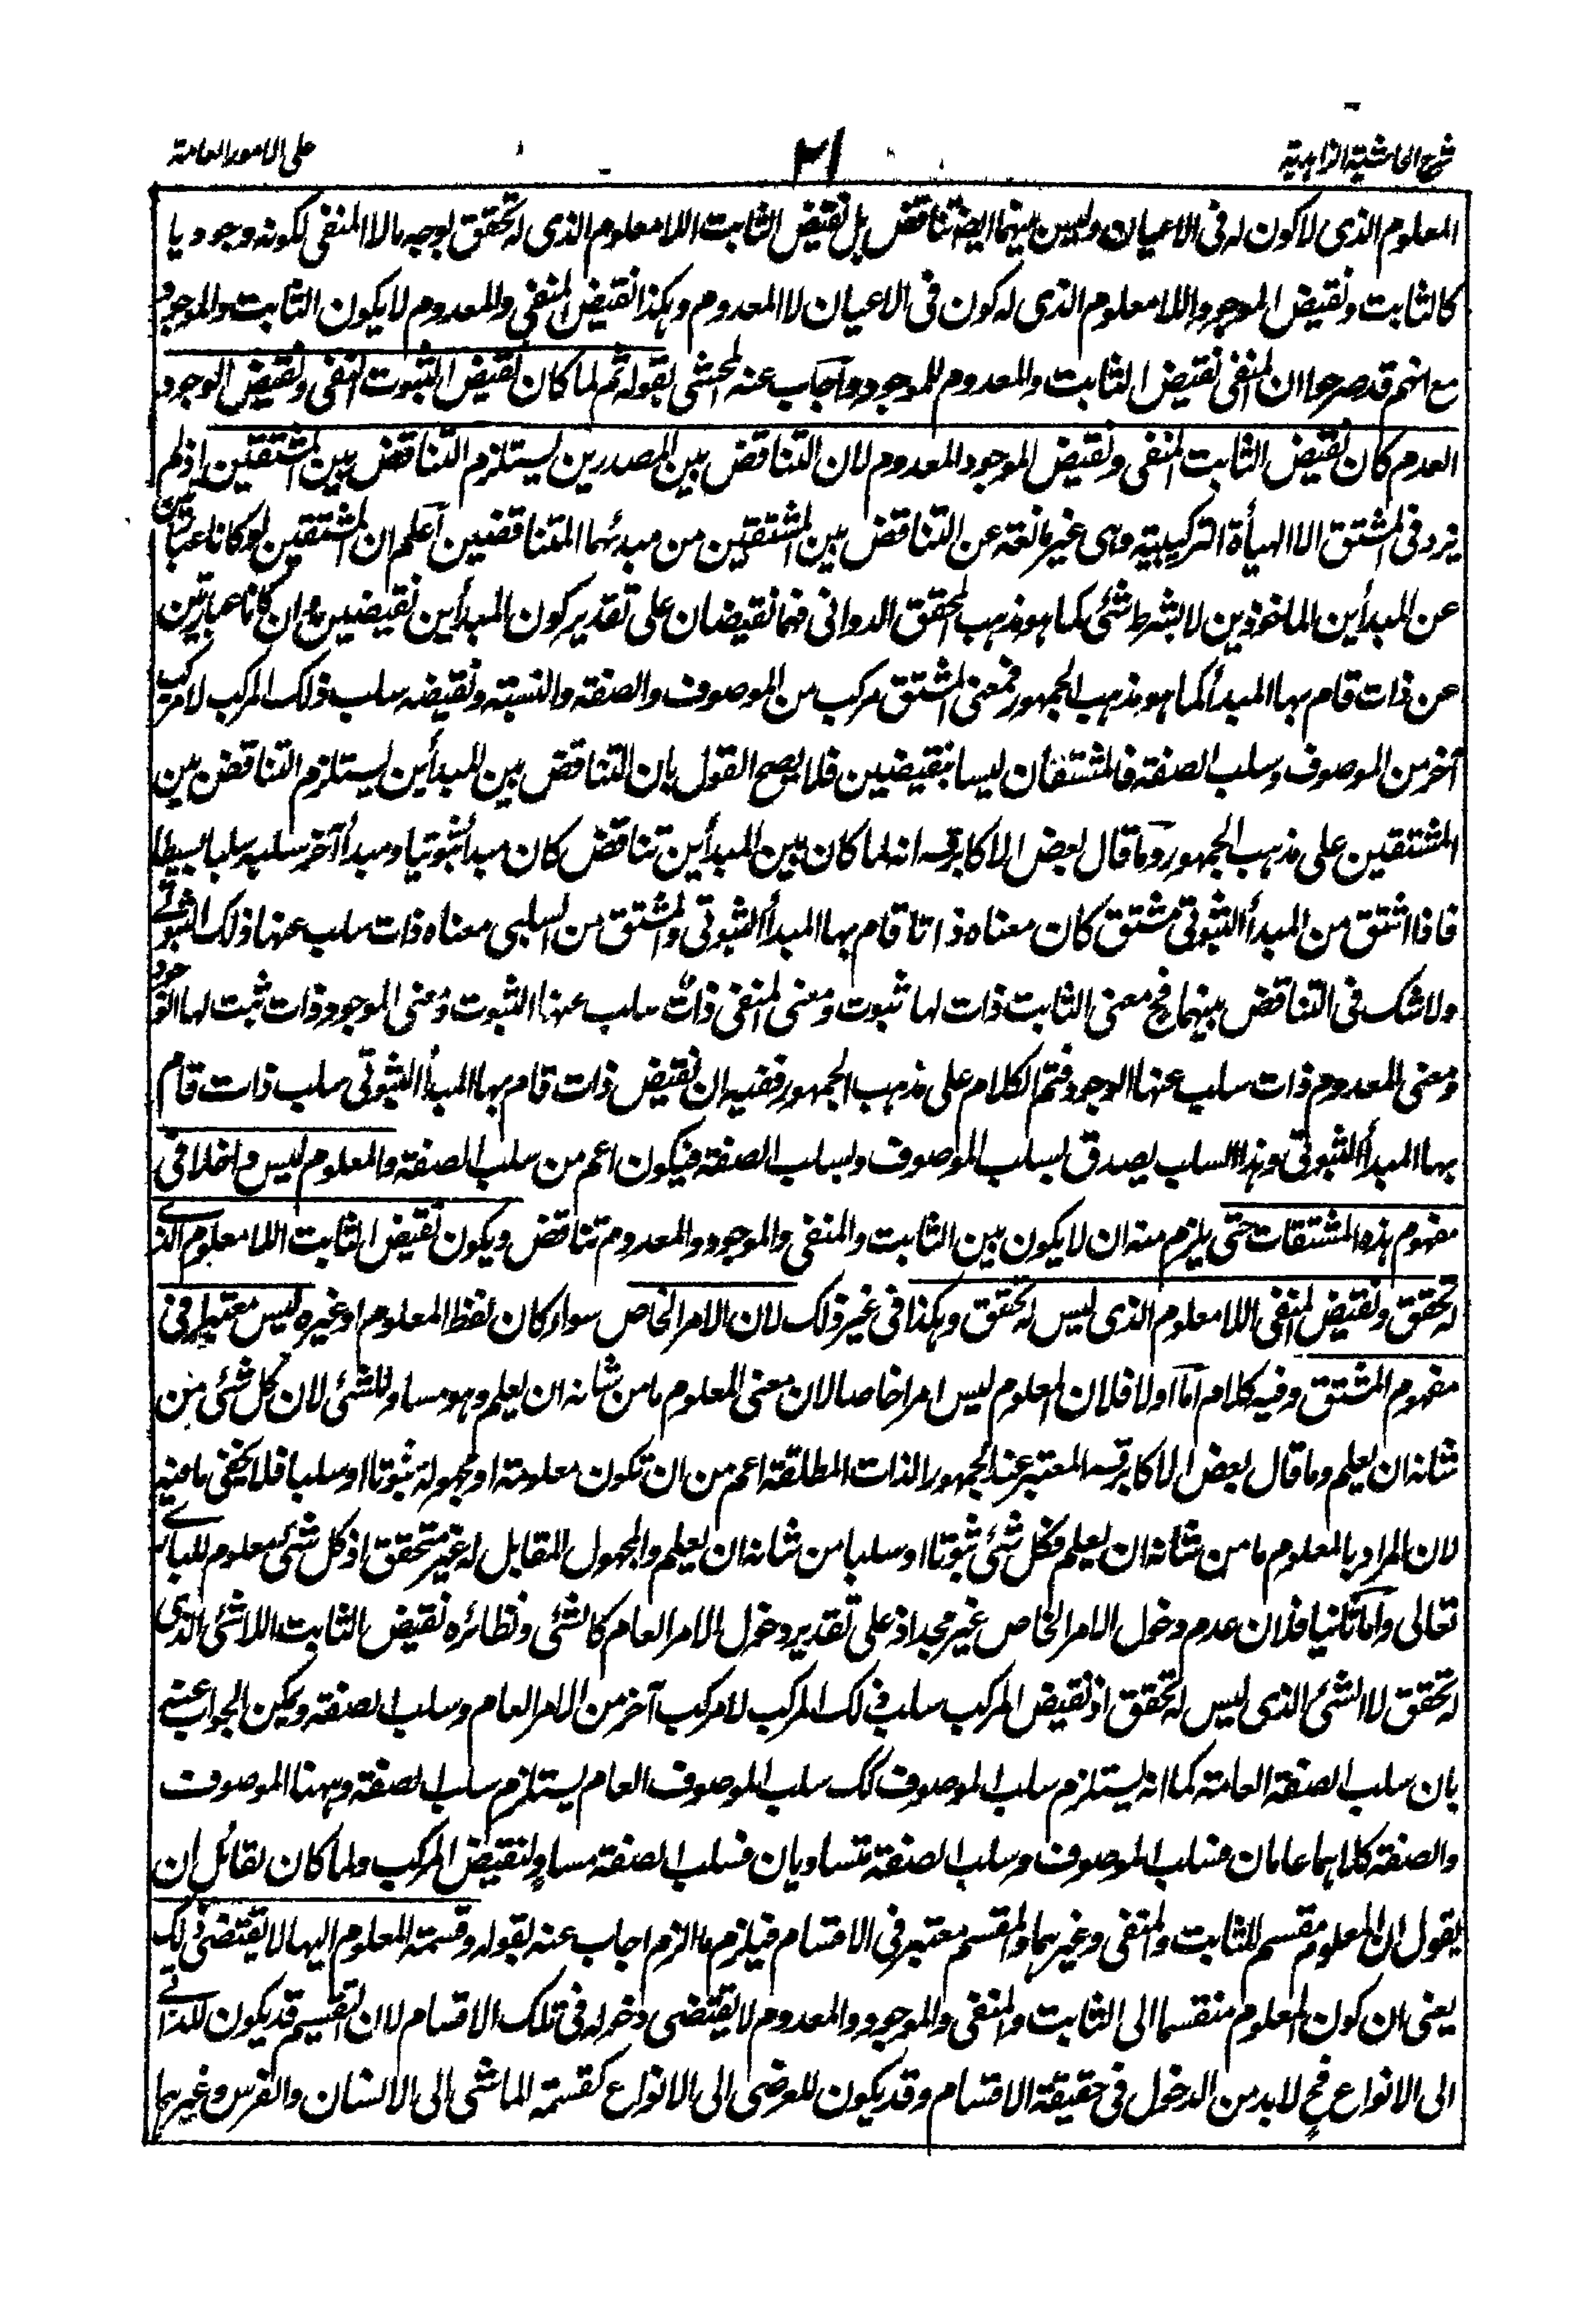 شرح الحاشية الزاهدية
٣١
على الامور العامة
المعلوم الذى لا كون له فى الاعيان وليس بينهما ايضا تناقض بل نقيض الثابت اللامعلوم الذى له تحقق لوجه ما لا المنفى لكونه وجوديا
كالثابت ونقيض الموجود اللامعلوم الذى له كون فى الاعيان لا المعدوم وهكذا نقيض المنفى والمعدوم لا يكون الثابت والموجود
مع انهم قد صرحوا ان المنفى نقيض الثابت والمعدوم للموجود واجاب عنه المحشى بقوله ثم لما كان نقيض الثبوت النفى ونقيض الوجود
العدم كان نقيض الثابت المنفى ونقيض الموجود المعدوم لان التناقض بين المصدرين يستلزم التناقض بين المشتقين اذ لم
يزد فى المشتق الا الهيأة التركيبية وهى غير مانعة عن التناقض بين المشتقين من مبدئهما المتناقضين اعلم ان المشتقين لو كانا عبارتين
عن المبدأين الماخوذين لا بشرط شئ كما هو مذهب المحقق الدوانى فهما نقيضان على تقدير كون المبدأين نقيضين وان كانا عبارتين
عن ذات قام بها المبدأ كما هو مذهب الجمهور فمعنى المشتق مركب من الموصوف والصفة والنسبة ونقيضه سلب ذلك المركب لا مركب
آخر من الموصوف وسلب الصفة فالمشتقان ليسا بنقيضين فلا يصح القول بان التناقض بين المبدأين يستلزم التناقض بين
المشتقين على مذهب الجمهور وما قال بعض الاكابر قسه انه لما كان بين المبدأين تناقض كان مبدأ ثبوتيا ومبدأ آخر سلبه سلبا بسيطا
فاذا اشتق من المبدأ الثبوتى مشتق كان معناه ذاتا قام بها المبدأ الثبوتى والمشتق من السلبى معناه ذات سلب عنها ذلك الثبوتى
ولا شك فى التناقض بينهما فح معنى الثابت ذات لها ثبوت ومعنى المنفى ذات سلب عنها الثبوت ومعنى الموجود ذات ثبت لها الوجود
ومعنى المعدوم ذات سلب عنها الوجود فتم الكلام على مذهب الجمهور ففيه ان نقيض ذات قام بها المبدأ الثبوتى سلب ذات قام
بها المبدأ الثبوتى وهذا السلب يصدق بسلب الموصوف وبسلب الصفة فيكون اعم من سلب الصفة والمعلوم ليس داخلا فى
مفهوم هذه المشتقات حتى يلزم منه ان لا يكون بين الثابت والمنفى والموجود والمعدوم تناقض ويكون نقيض الثابت اللامعلوم الذى
له تحقق ونقيض المنفى اللامعلوم الذى ليس له تحقق وهكذا فى غير ذلك لان الامر الخاص سواء كان لفظ المعلوم او غيره ليس معتبرا فى
مفهوم المشتق وفيه كلام اما اولا فلان المعلوم ليس امرا خاصا لان معنى المعلوم ما من شانه ان يعلم وهو مساو للشئ لان كل شئ من
شانه ان يعلم وما قال بعض الاكابر قسه المعتبر عند الجمهور الذات المطلقة اعم من ان تكون معلومة او مجهولة ثبوتا او سلبا فلا يخفى ما فيه
لان المراد بالمعلوم ما من شانه ان يعلم فكل شئ ثبوتا او سلبا من شانه ان يعلم والمجهول المقابل له غير متحقق اذ كل شئ معلوم للبارى
تعالى واما ثانيا فلان عدم دخول الامر الخاص غير مجد اذ على تقدير دخول الامر العام كالشئ ونظائره نقيض الثابت اللاشئ الذى
له تحقق لا الشئ الذى ليس له تحقق اذ نقيض المركب سلب ذلك المركب لا مركب آخر من الامر العام وسلب الصفة ويمكن الجواب عنه
بان سلب الصفة العامة كما انه يستلزم سلب الموصوف كك سلب الموصوف العام يستلزم سلب الصفة وههنا الموصوف
والصفة كلاهما عامان فسلب الموصوف وسلب الصفة متساويان فسلب الصفة مساو لنقيض المركب ولما كان لقائل ان
يقول ان المعلوم مقسم للثابت والمنفى وغيرهما والمقسم معتبر فى الاقسام فيلزم ما الزم اجاب عنه بقوله وقسمة المعلوم اليها لا يقتضى ذلك
يعنى ان كون المعلوم منقسما الى الثابت والمنفى والموجود والمعدوم لا يقتضى دخوله فى تلك الاقسام لان التقسيم قد يكون للذاتى
الى الانواع فح لا بد من الدخول فى حقيقة الاقسام وقد يكون للعرضى الى الانواع كقسمة الماشى الى الانسان والفرس وغيرهما